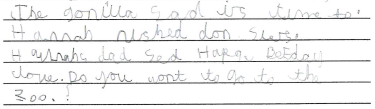 The gorilla sad its time to.
Hannah rushed don sters.
Hannahs dad sed Happy Birday
love. Do you wont to go to the
zoo.?